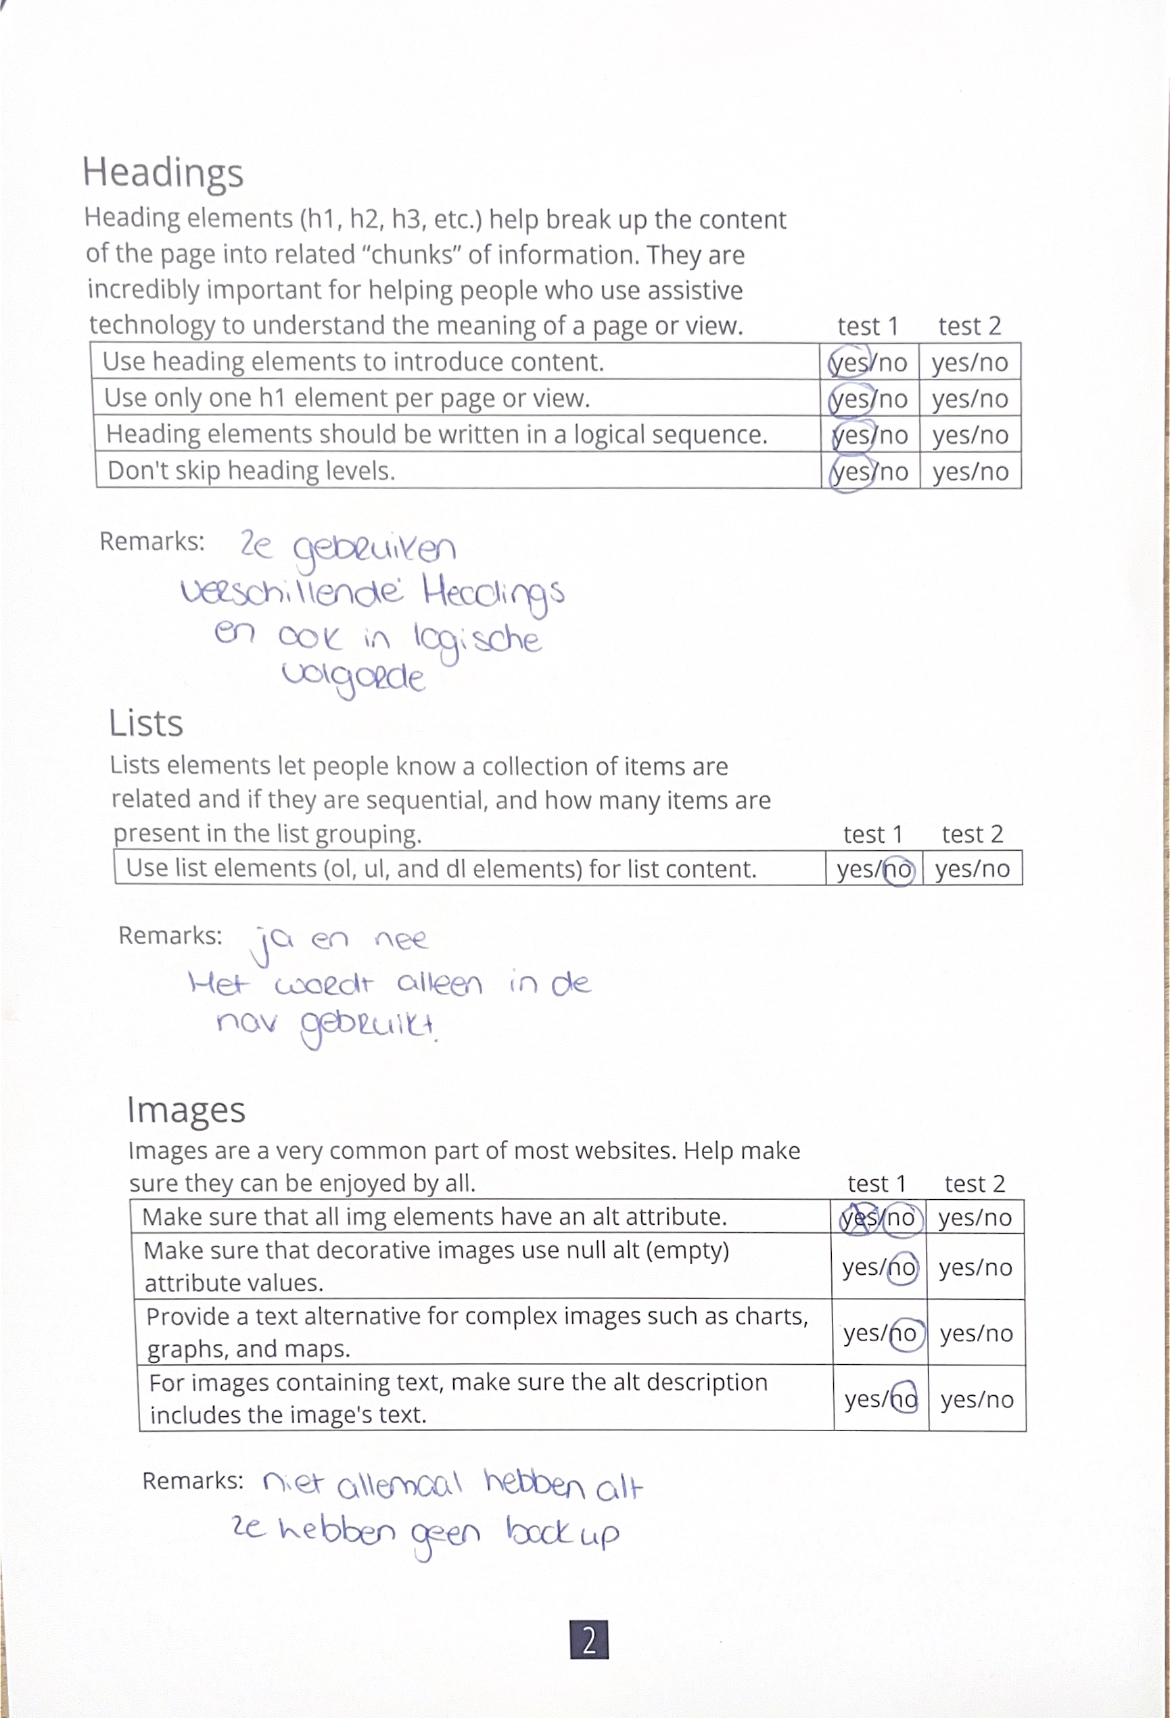 Headings
Heading elements (h1, h2, h3, etc.) help break up the content
of the page into related “chunks” of information. They are
incredibly important for helping people who use assistive
technology to understand the meaning of a page or view. test 1 test 2
Use heading elements to introduce content. yes/no yes/no
Use only one h1 element per page or view. yes/no yes/no
Heading elements should be written in a logical sequence. yes/no yes/no
Don't skip heading levels. yes/no yes/no
Remarks: Ze gebruiken
verschillende Headings
en ook in logische
volgorde
Lists
Lists elements let people know a collection of items are
related and if they are sequential, and how many items are
present in the list grouping. test 1 test 2
Use list elements (ol, ul, and dl elements) for list content. yes/no yes/no
Remarks: ja en nee
Het wordt alleen in de
nav gebruikt.
Images
Images are a very common part of most websites. Help make
sure they can be enjoyed by all. test 1 test 2
Make sure that all img elements have an alt attribute. yes/no yes/no
Make sure that decorative images use null alt (empty)
attribute values. yes/no yes/no
Provide a text alternative for complex images such as charts,
graphs, and maps. yes/no yes/no
For images containing text, make sure the alt description
includes the image's text. yes/no yes/no
Remarks: niet allemaal hebben alt
ze hebben geen back up
2